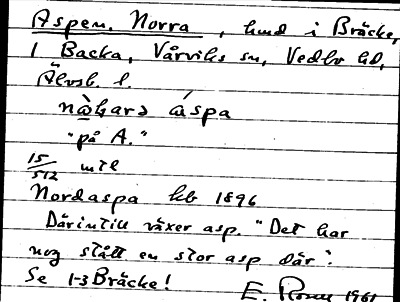 Aspen. Norra, hmd i Bräcke,
1 Backa, Vårviks sn, Vedbo hd,
Älvsb. l.
nòhará áspa
"på A."
15/512 mtl
Nordaspa kb 1896
Därintill växer asp. "Det har
nog stått en stor asp där".
Se 1-3 Bräcke!
E. 1961